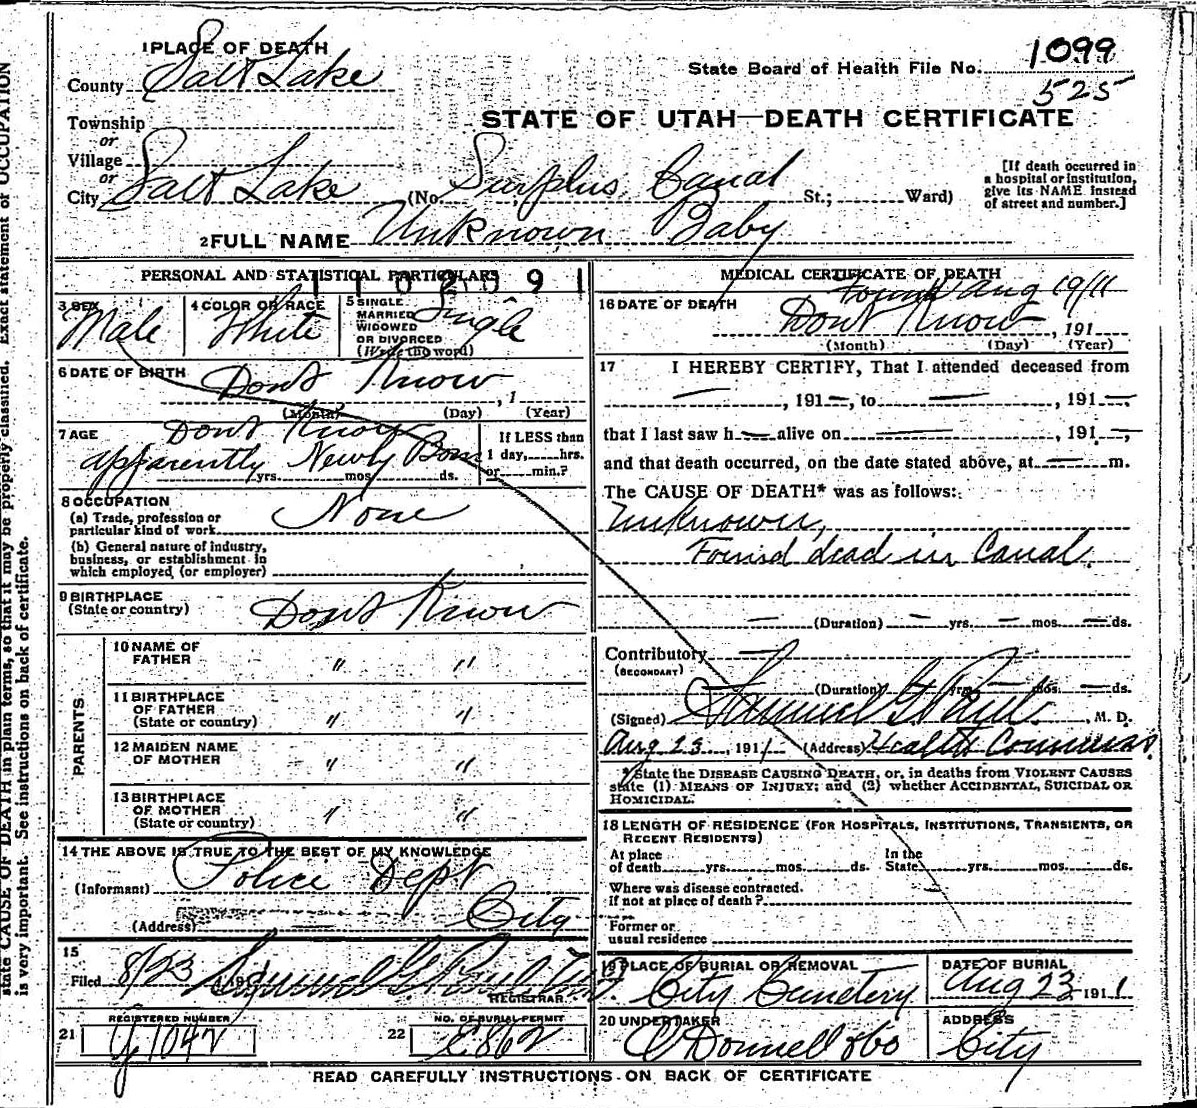 1 PLACE OF DEATH
State Board of Health File No. 1099
County Salt Lake
525
STATE OF UTAH—DEATH CERTIFICATE
Township
or
Village
or
City Salt Lake (No. Surplus Canal St.; Ward)
[If death occurred in a hospital or institution, give its NAME instead of street and number.]
2 FULL NAME Unknown Baby
PERSONAL AND STATISTICAL PARTICULARS
3 SEX Male
4 COLOR OR RACE White
5 SINGLE MARRIED WIDOWED OR DIVORCED (Write the word) Single
6 DATE OF BIRTH Dont Know , 1
(Month) (Day) (Year)
7 AGE Dont Know
apparently Newly Born
yrs. mos. ds.
If LESS than 1 day, hrs. or min.?
8 OCCUPATION
(a) Trade, profession or particular kind of work None
(b) General nature of industry, business, or establishment in which employed (or employer)
9 BIRTHPLACE (State or country) Dont Know
PARENTS
10 NAME OF FATHER " "
11 BIRTHPLACE OF FATHER (State or country) " "
12 MAIDEN NAME OF MOTHER " "
13 BIRTHPLACE OF MOTHER (State or country) " "
14 THE ABOVE IS TRUE TO THE BEST OF MY KNOWLEDGE
(Informant) Police Dept
(Address) City
15
Filed 8/23 Samuel G. Paul
REGISTRAR.
REGISTERED NUMBER
21
NO. OF BURIAL PERMIT
22 E862
MEDICAL CERTIFICATE OF DEATH
16 DATE OF DEATH Found Aug 19/11
Dont Know , 191
(Month) (Day) (Year)
17 I HEREBY CERTIFY, That I attended deceased from
— , 191—, to — , 191—,
that I last saw h— alive on — , 191—,
and that death occurred, on the date stated above, at — m.
The CAUSE OF DEATH* was as follows:
Unknown,
Found dead in Canal.
— (Duration) — yrs. — mos. — ds.
Contributory —
(SECONDARY)
(Duration) yrs. — mos. — ds.
(Signed) Samuel G. Paul , M. D.
Aug 23 , 1911 (Address) Health Commiss
*State the DISEASE CAUSING DEATH, or, in deaths from VIOLENT CAUSES
state (1) MEANS OF INJURY; and (2) whether ACCIDENTAL, SUICIDAL OR
HOMICIDAL.
18 LENGTH OF RESIDENCE (FOR HOSPITALS, INSTITUTIONS, TRANSIENTS, OR
RECENT RESIDENTS)
At place of death yrs. mos. ds. In the State yrs. mos. ds.
Where was disease contracted.
if not at place of death?
Former or
usual residence
19 PLACE OF BURIAL OR REMOVAL City Cemetery
DATE OF BURIAL Aug 23 1911
20 UNDERTAKER O'Donnell & Co
ADDRESS City
READ CAREFULLY INSTRUCTIONS ON BACK OF CERTIFICATE
state CAUSE OF DEATH in plain terms, so that it may be properly classified. Exact statement of OCCUPATION
is very important. See instructions on back of certificate.